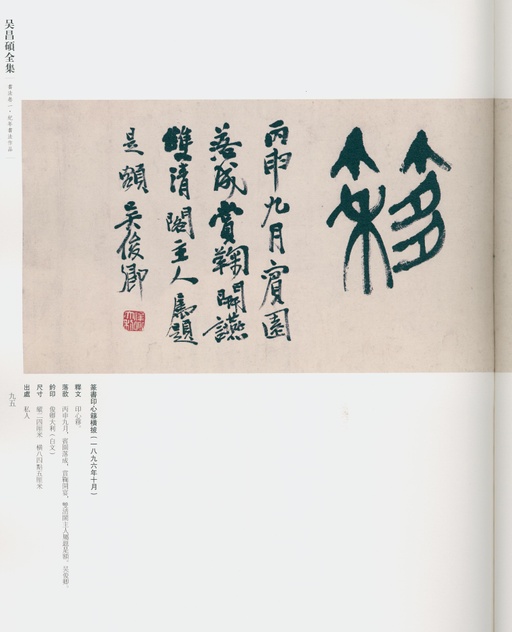 吴昌碩全集
書法卷一·紀年書法作品
簃
丙申九月賓園
落成賞鞠開讌
雙清閣主人属題
是額 吴俊卿
篆書印心簃橫披（一八九六年十月）
釋文 印心簃。
落款 丙申九月，賓園落成，賞鞠開宴，雙清閣主人属題是額。吴俊卿。
鈐印 俊卿大利（白文）
尺寸 縱二四厘米 橫八四點五厘米
出處 私人
九五